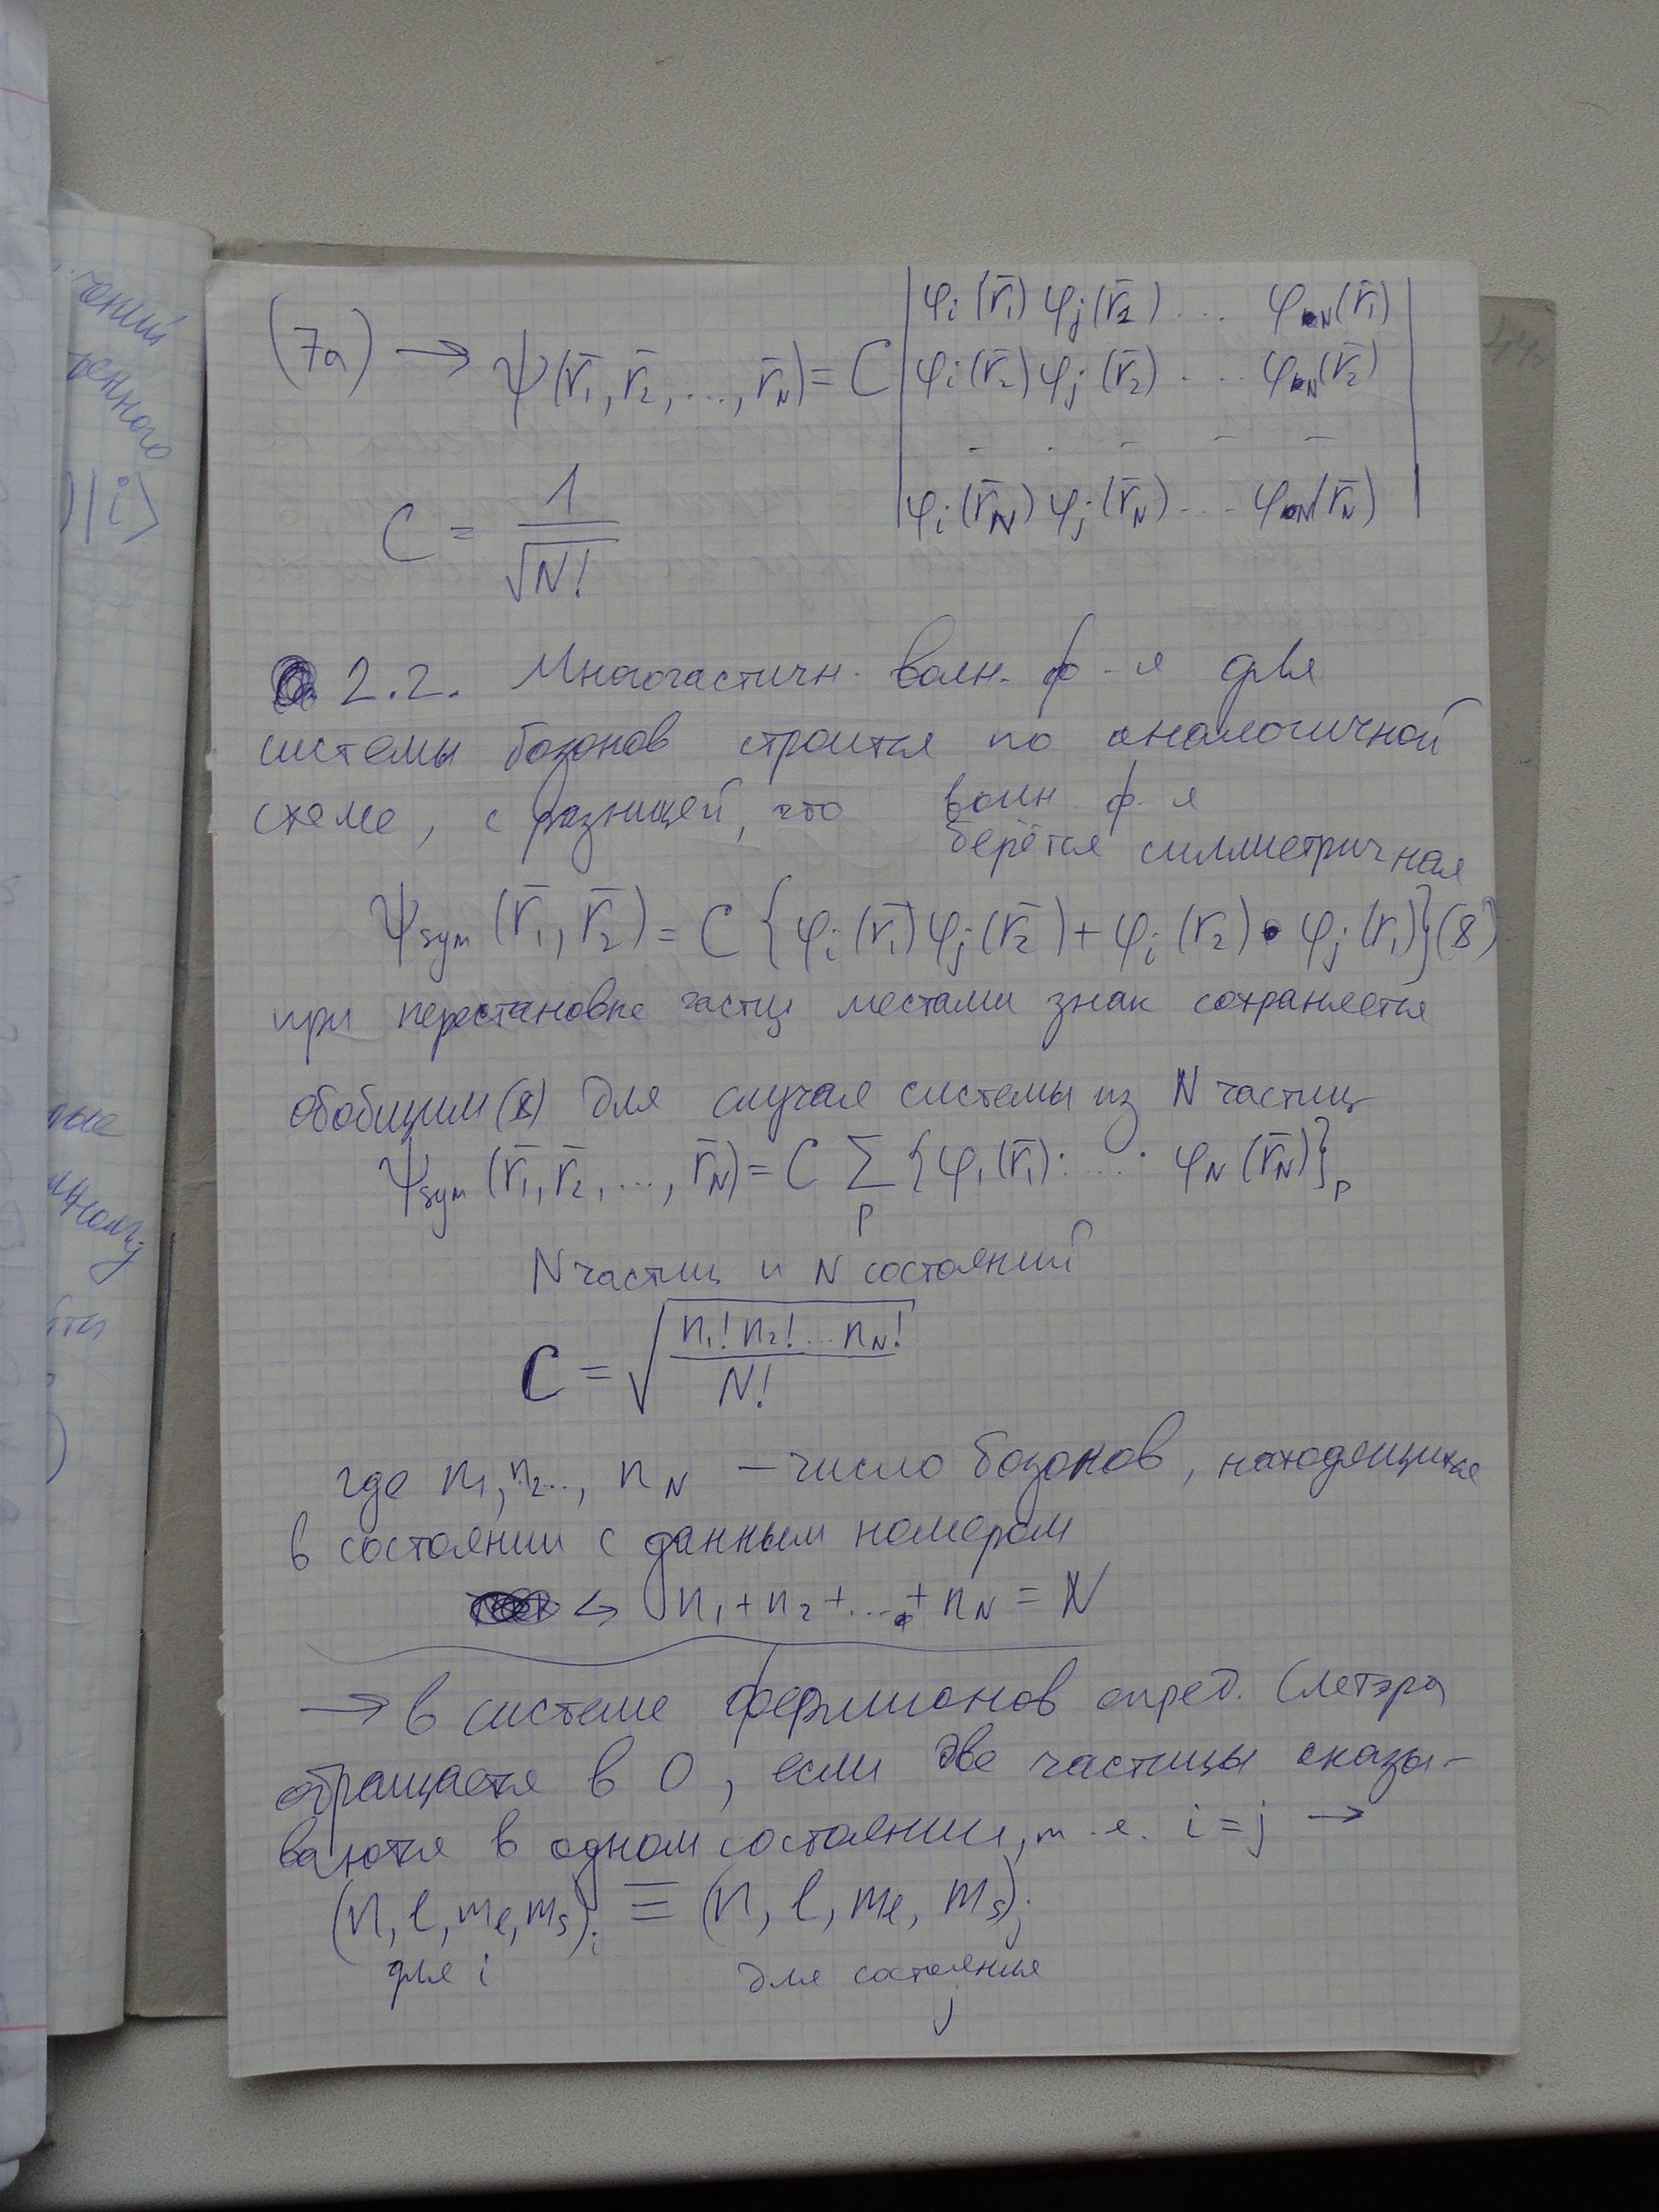 (7а) → ψ(r̄₁, r̄₂, ..., r̄_N) = C | φᵢ(r̄₁) φⱼ(r̄₂) ... φ_N(r̄₁) |
| φᵢ(r̄₂) φⱼ(r̄₂) ... φ_N(r̄₂) |
| - . - - - |
| φᵢ(r̄_N) φⱼ(r̄_N) ... φ_N(r̄_N) |
C = 1/√N!
2.2. Многочастичн. волн. ф-я для
системы бозонов строится по аналогичной
схеме, с разницей, что волн. ф-я
берётся симметричная
ψ_sym (r̄₁, r̄₂) = C {φᵢ(r̄₁) φⱼ(r̄₂) + φᵢ(r₂) · φⱼ(r₁)} (8)
при перестановке частиц местами знак сохраняется
обобщим (8) для случая системы из N частиц
ψ_sym (r̄₁, r̄₂, ..., r̄_N) = C Σ_P {φ₁(r̄₁) · ... · φ_N(r̄_N)}_P
N частиц и N состояний
C = √(n₁! n₂! ... n_N! / N!)
где n₁, n₂..., n_N – число бозонов, находящихся
в состоянии с данным номером
↪ n₁ + n₂ + ... + n_N = N
→ в системе фермионов опред. Слетэра
обращается в 0, если две частицы оказы-
ваются в одном состоянии, т.е. i = j →
(n, l, m_l, m_s)ᵢ ≡ (n, l, m_l, m_s)ⱼ
для i для состояния
j
чений
ренного
)|i⟩